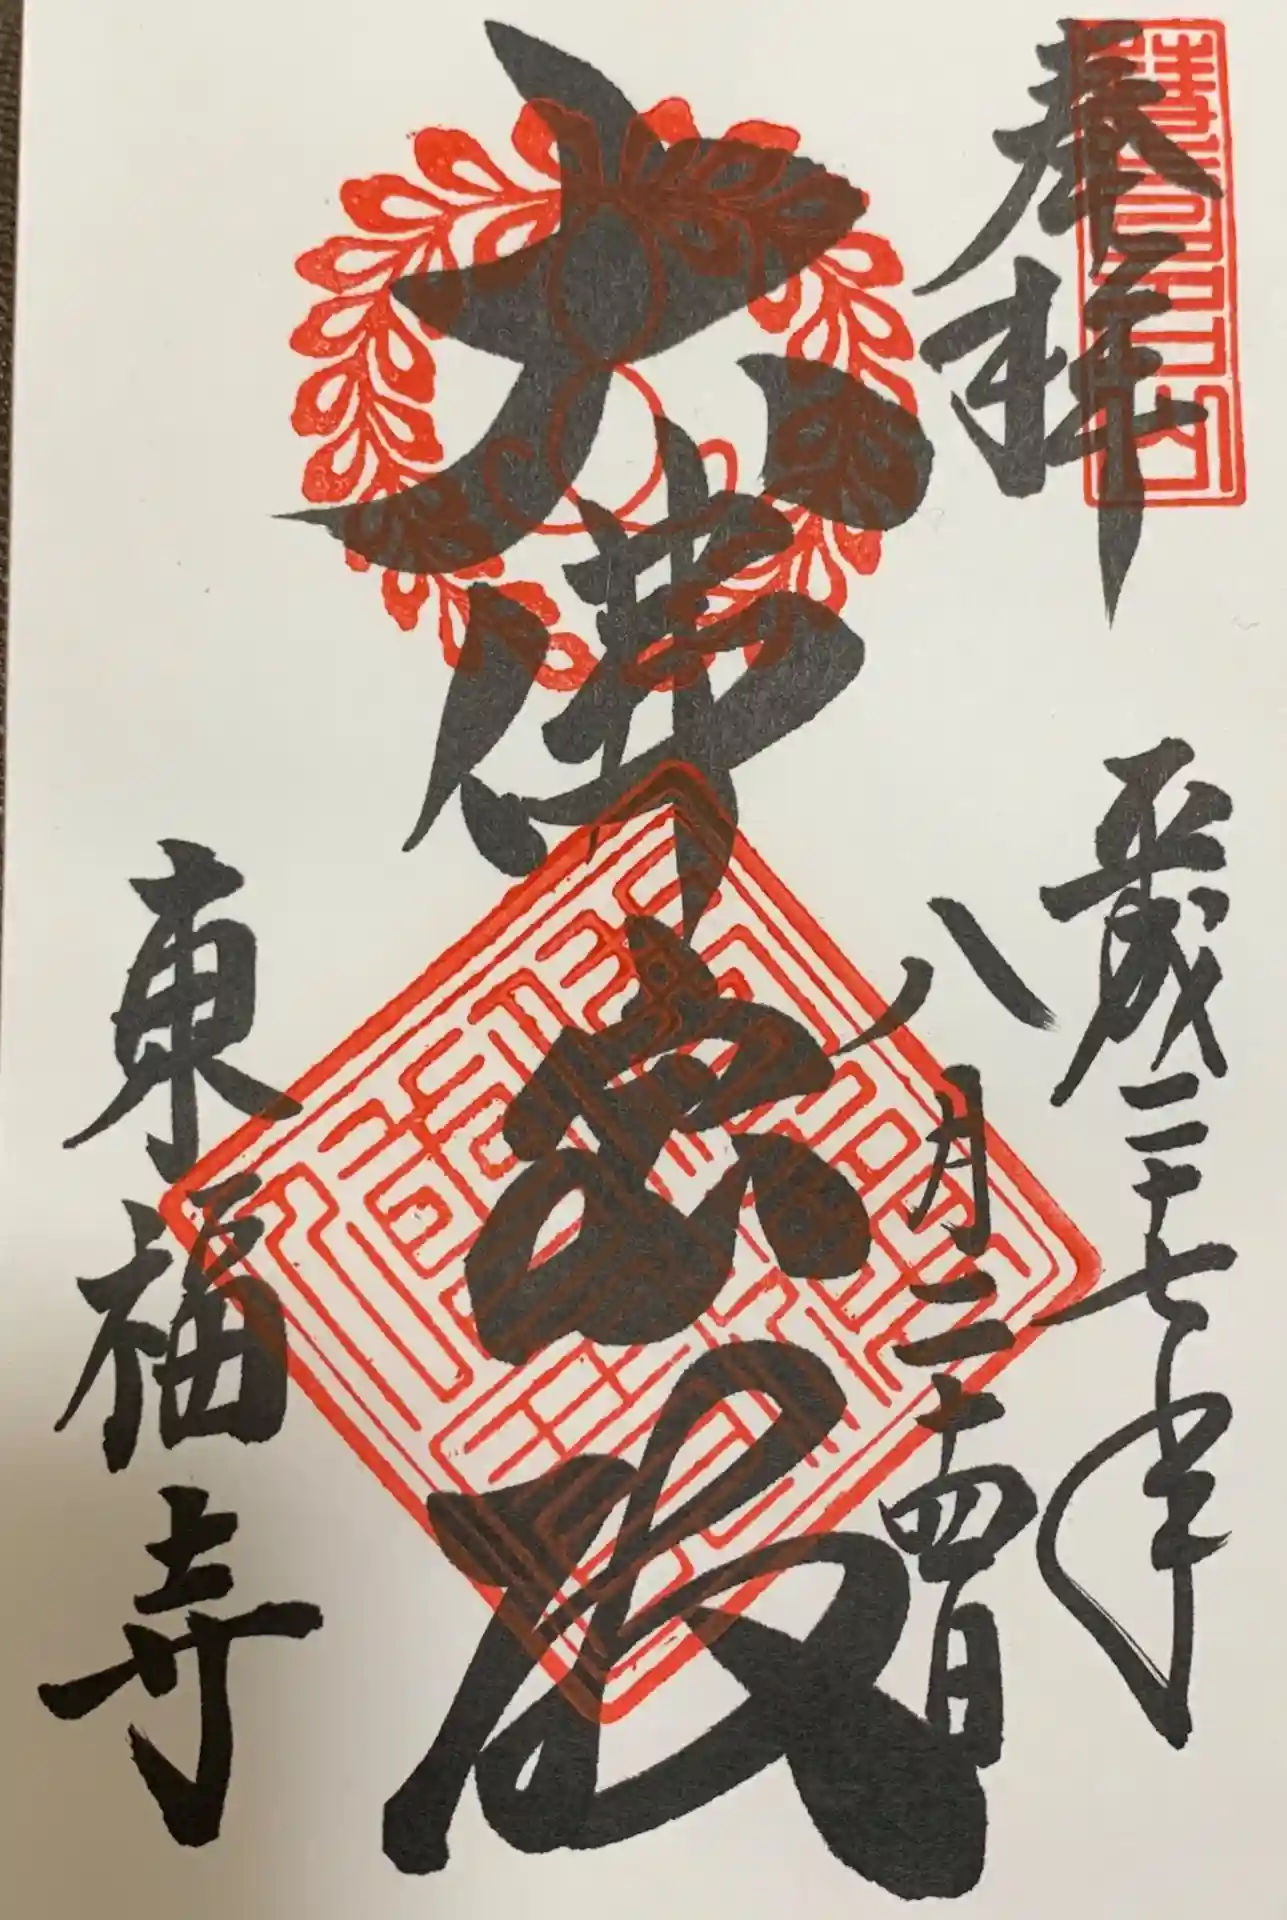 奉拝
平成二十七年
八月二十四日
大佛宝殿
東福寺